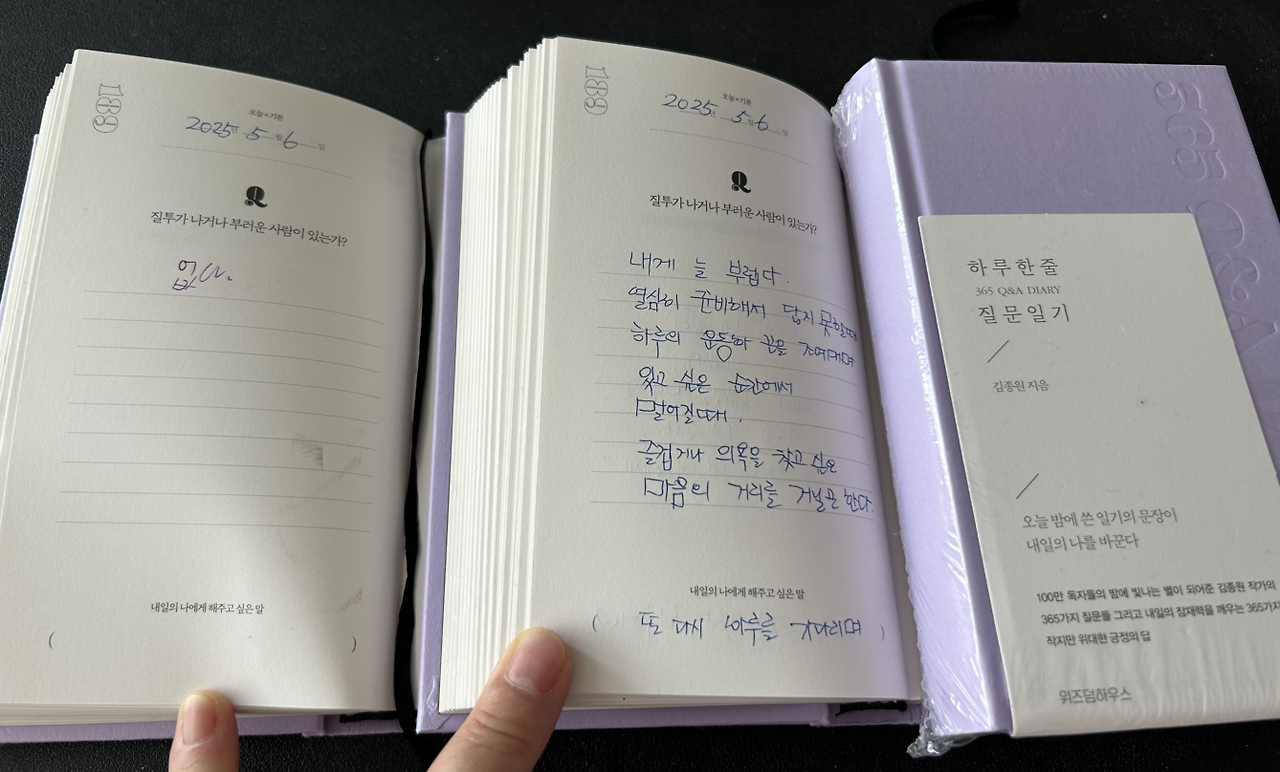 189
오늘×기분
2025년 5월 6일
Q
질투가 나거나 부러운 사람이 있는가?
없다.
내일의 나에게 해주고 싶은 말
( )
189
오늘×기분
2025년 5월 6일
Q
질투가 나거나 부러운 사람이 있는가?
내게 늘 부럽다.
열심히 준비해서 닿지 못할때
하루의 운동화 끈을 조여매며
잊고 싶은 순간에서
멀어질때.
즐겁거나 의욕을 찾고 싶은
마음의 거리를 한다.
내일의 나에게 해주고 싶은 말
( 또 다시 하루를 기다리며 )
365 Q&A
하루 한 줄
365 Q&A DIARY
질문 일기
김종원 지음
오늘 밤에 쓴 일기의 문장이
내일의 나를 바꾼다
100만 독자들의 밤에 빛나는 별이 되어준 김종원 작가의
365가지 질문들 그리고 내일의 잠재력을 깨우는 365가지
작지만 위대한 긍정의 답
위즈덤하우스